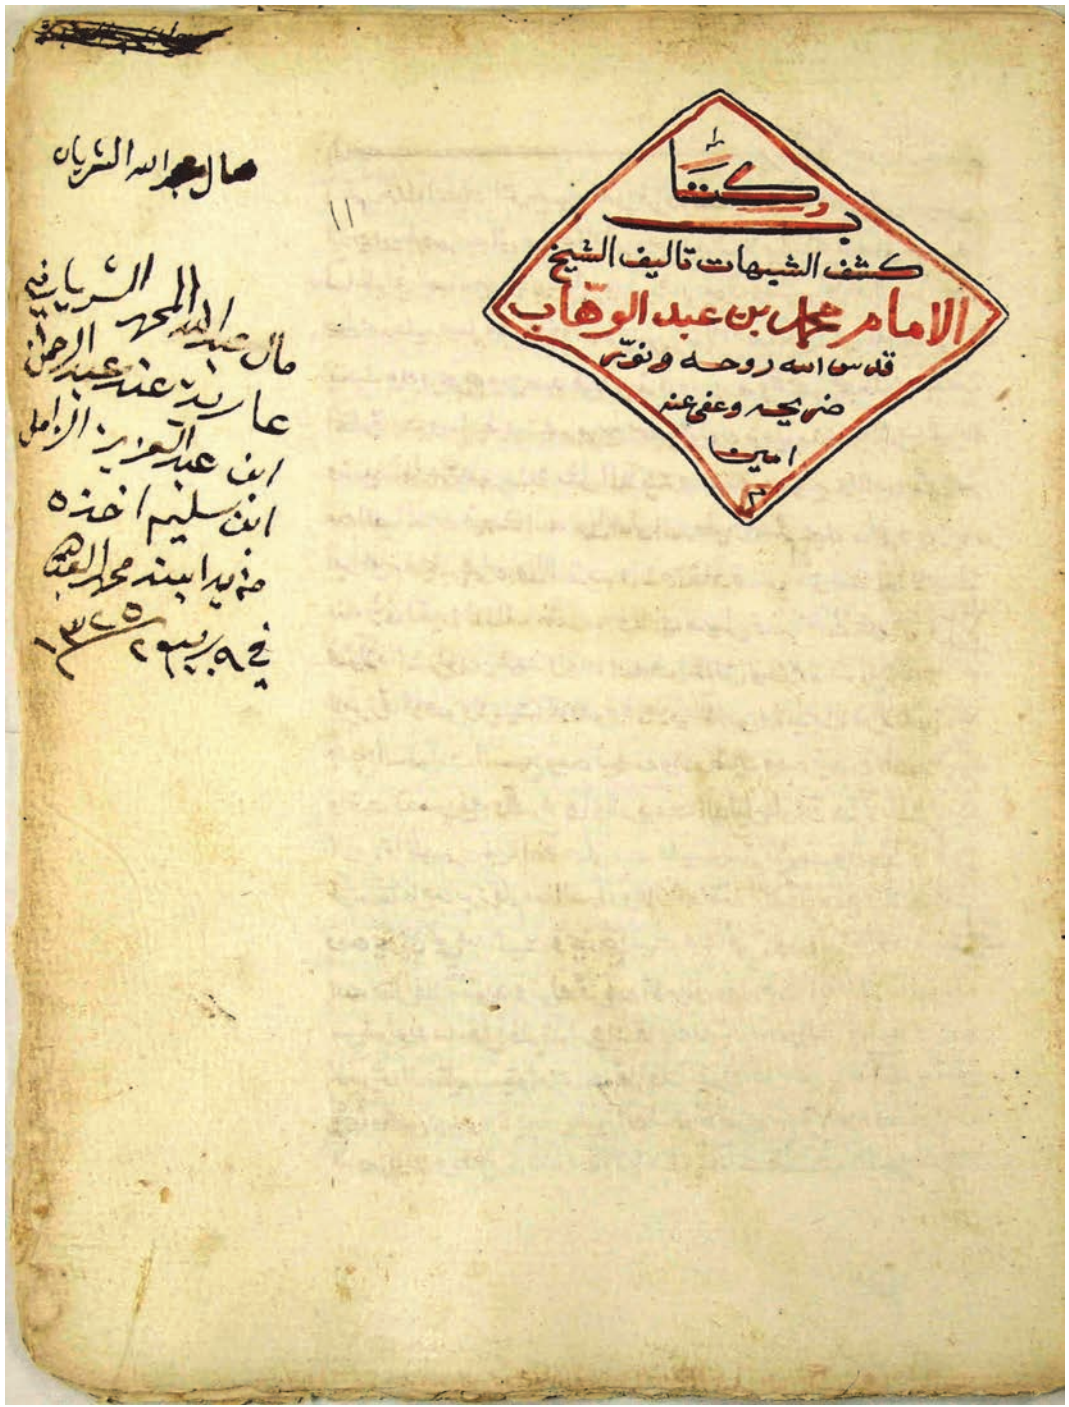 كتا
ب
كشف الشبهات تاليف الشيخ
الامام محمد بن عبد الوهاب
قدس الله روحه ونوّر
ضريحه وعفى عنه
امين
م
١١
مال عبدالله الشريان
مال عبدالله المحمد الشريان
عارية عند عبد الرحمن
ابن عبد العزيز الزامل
ابن سليم اخذه
من يد ابنه محمد
في ٩ ر ١٣٢٥